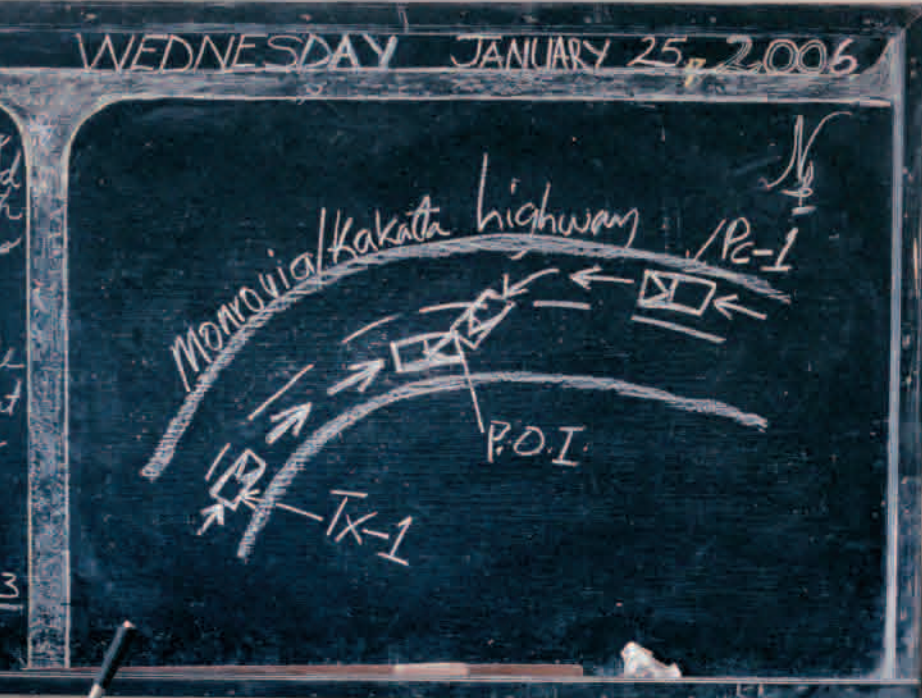 WEDNESDAY JANUARY 25, 2006
N
Monrovia/Kakata highway
Pc-1
P.O.I.
Tx-1
3